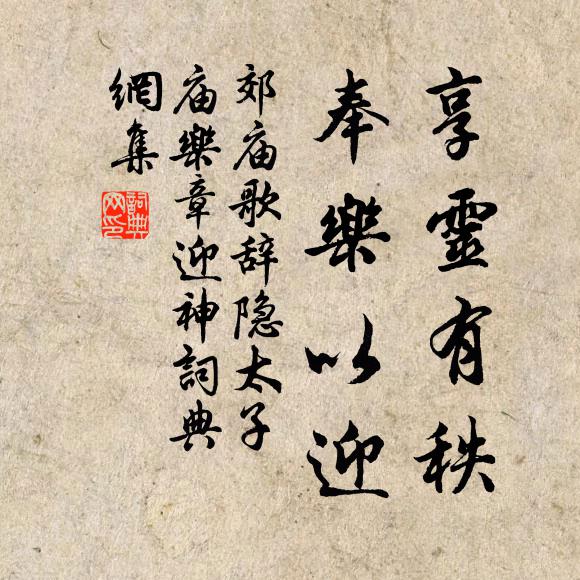 享靈有秩
奉樂以迎
郊庙歌辞隐太子
庙樂章迎神詞典
網集
詞典
网印